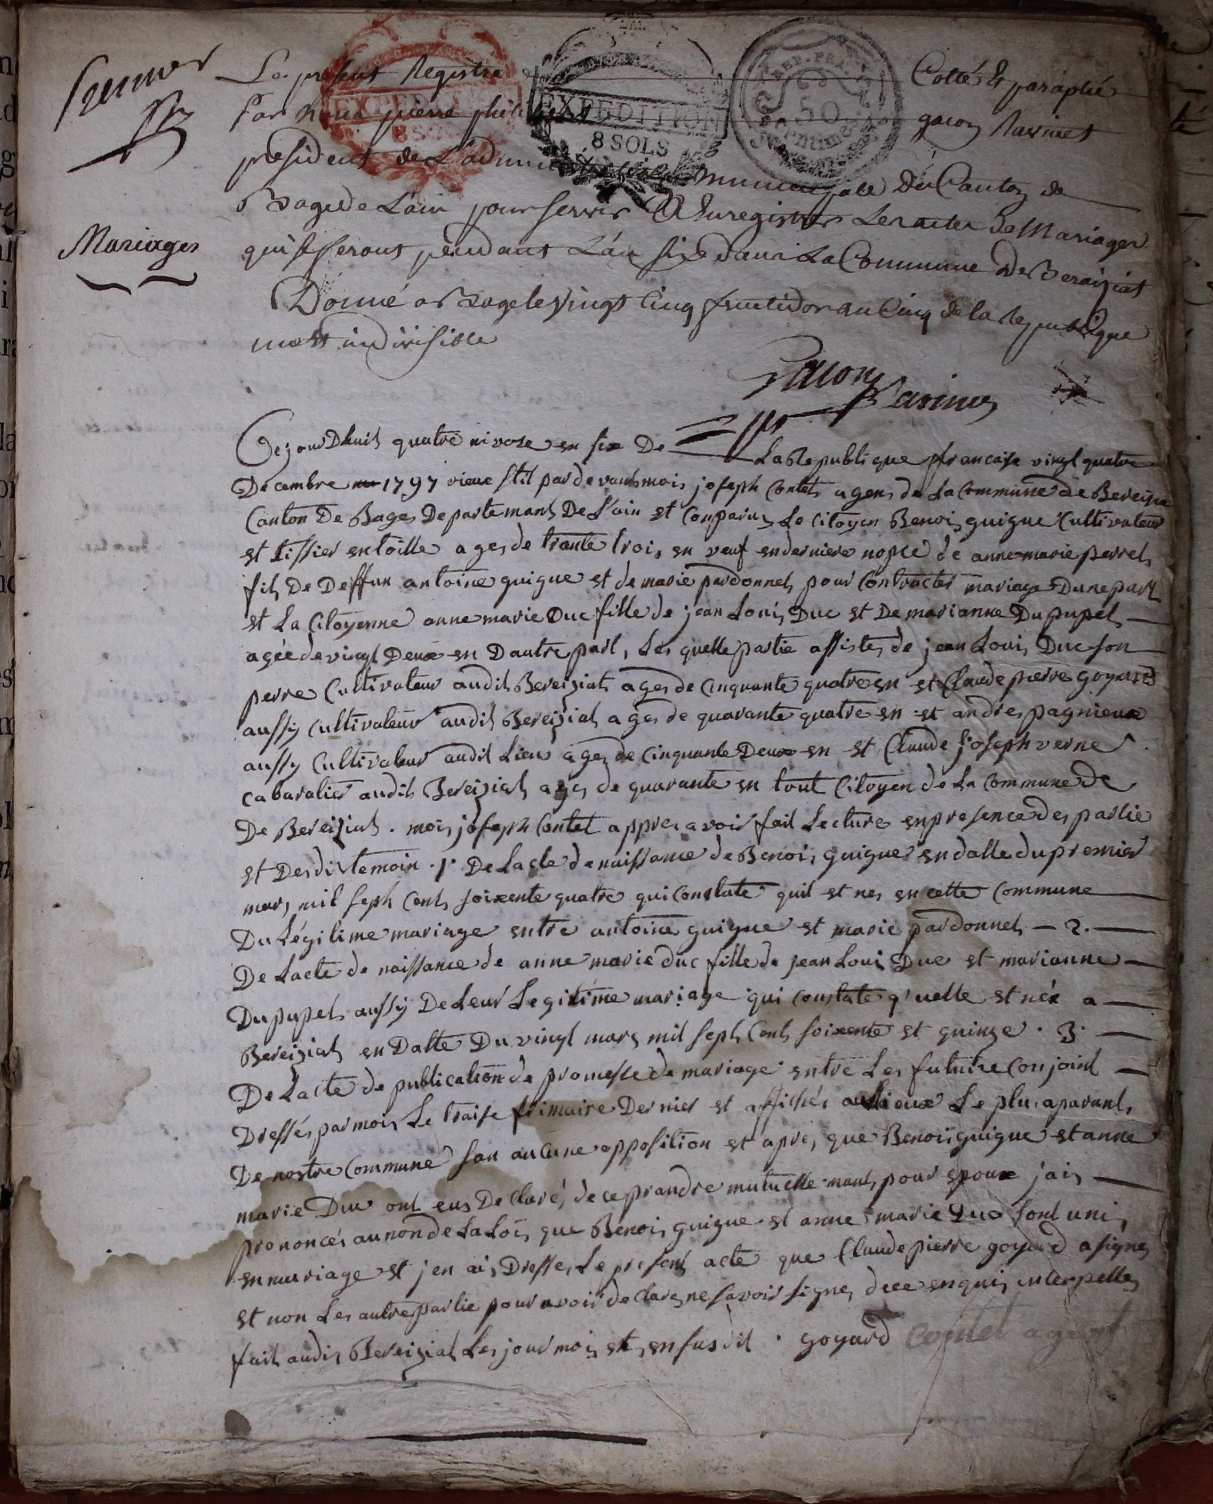 premier
Mariages
Le present Registre Cotté & paraphé
Par Nous pierre philibert gacon Navinet
president de L'administration municipale du Canton de
Bagé de L'ain pour servir a Enregistrer les actes de Mariages
qui se feront pendant L'an six dans La Commune de Bereiziat
Donné a Bagé le vingt Cinq fructidor an Cinq de la Republique
une et indivisible
EXPEDITION
8 SOLS
EXPEDITION
8 SOLS
REP. FRA.
50
Centimes
Gacon
Cejourdhuit quatre nivose en six De La Republique francaise vingt quatre
Decembre 1797 vieux stil pardevant moi, joseph Contet, agens de La Commune de Bereizia
Canton De Bages Departemans De L'ain est Comparus Le Citoyen Benois guigue Cultivateur
et tissier en toille ages de trante trois en veuf en derniere nopce de anne marie perret
fils De Deffun antoine guigue et de marie pardonnet, pour Contracter mariage Dune part
et La Citoyenne anne marie Duc fille de jean Louis Duc et De marianne Dupupet
agée de vingt Deux en Dautre part, Les quelle partie assistes de jean Louis Duc son
perre Cultivateur audit Bereiziat ages de Cinquante quatre en et Claude pierre goyard
aussy Cultivateur audit Bereiziat ages de quarante quatre en et andres pagnieux
aussy Cultivateur audit Lieu ages de Cinquante Deux en et Claude joseph verne
Cabaratier audit Bereiziat ages de quarante en tout Citoyen de La Commune de
De Bereiziat. moi joseph Contet appres avoir fait Lecture en presence des partie
et Desdis temoin. 1° De Lacte de naissance de Benois guigue en datte du premier
mars mil seph Cent soixente quatre qui Constate quil et nes en cette Commune
Du Légitime mariage entre antoine guigue et marie pardonnet — 2. —
De Lacte de naissance de anne marie duc fille de jean Loui Duc et marianne
Dupupet aussy De Leur Legitime mariage qui Constate q'uelle et née a
Bereiziat en Datte Du vingt mars mil seph Cent soixente et quinze. 3.
De Lacte de publication de promesse de mariage entre Les future Conjoint
Dressés par moi Le traise frimaire Dernier et affichés au Lieux Le plus aparant
De nostre Commune san aucune opposition et apres que Benois guigue et anne
marie Duc ont eus Declarés de ce prandre mutuellemant pour epoux jais
prononcés au non de La Loi, que Benois guigue et anne marie Duc sont uni
en mariage et jen ai Dresse Le present acte que Claude pierre goyard a signe
et non Les autre partie pour avoir declares ne savoir signe, dece enquis interpelles
fait audis Bereiziat Les jour mois et en susdit. goyard Contet agent